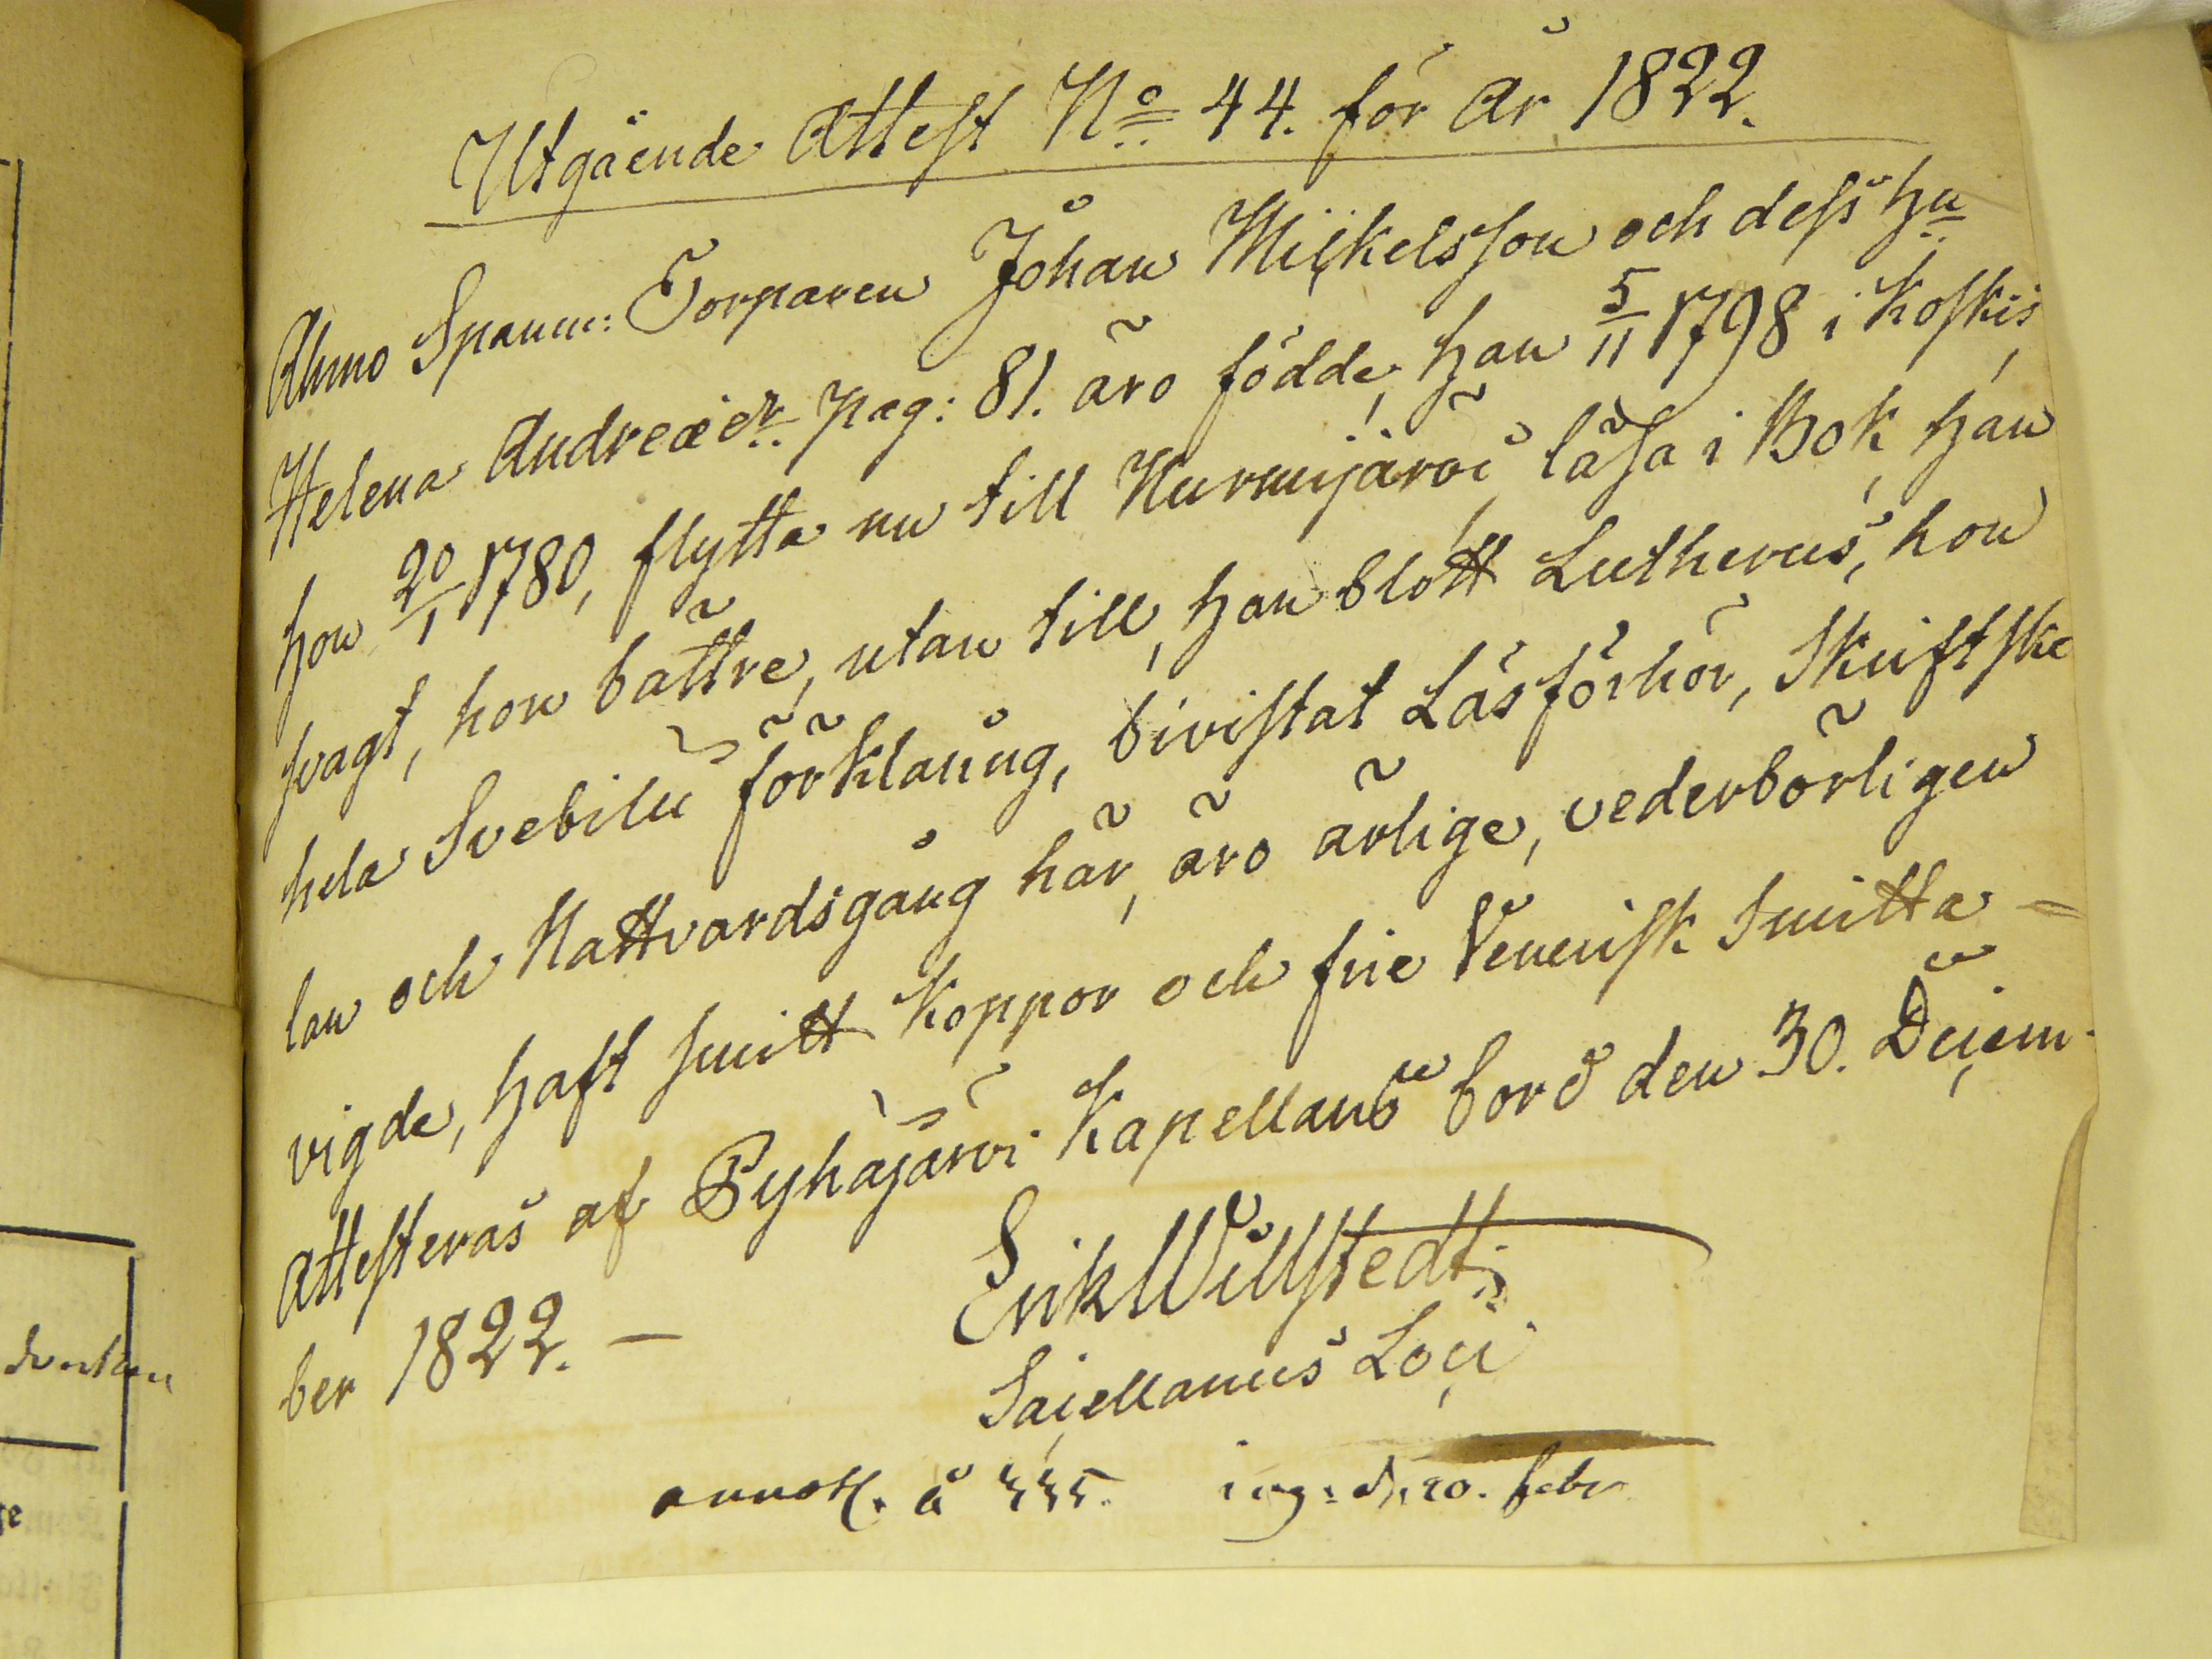 Utgående Attest No 44. för År 1822.
Ahmo Spannm: Torparen Johan Mickelsson och dess hu
Helena Andreædr. pag: 81. äro födde, han 5/11 1798 i Koskis,
hon 20/1 1780, flytta nu till Nurmijärvi, läsa i Bok, han
svagt, hon bättre, utan till, han blott Lutherus, hon
hela Svebilii förklaring, bivistat Läsförhör, Skriftska
lan och Nattvardsgång här, äro ärlige, vederbörligen
vigde, haft smitt koppor och frie Venerisk Smitta –
Attesteras af Pyhäjärvi Kapellans bord den 30. Decem-
ber 1822. –
Erik Willstedt.
Sacellanus Loci
annott. å 335. ing. d. 20. febr